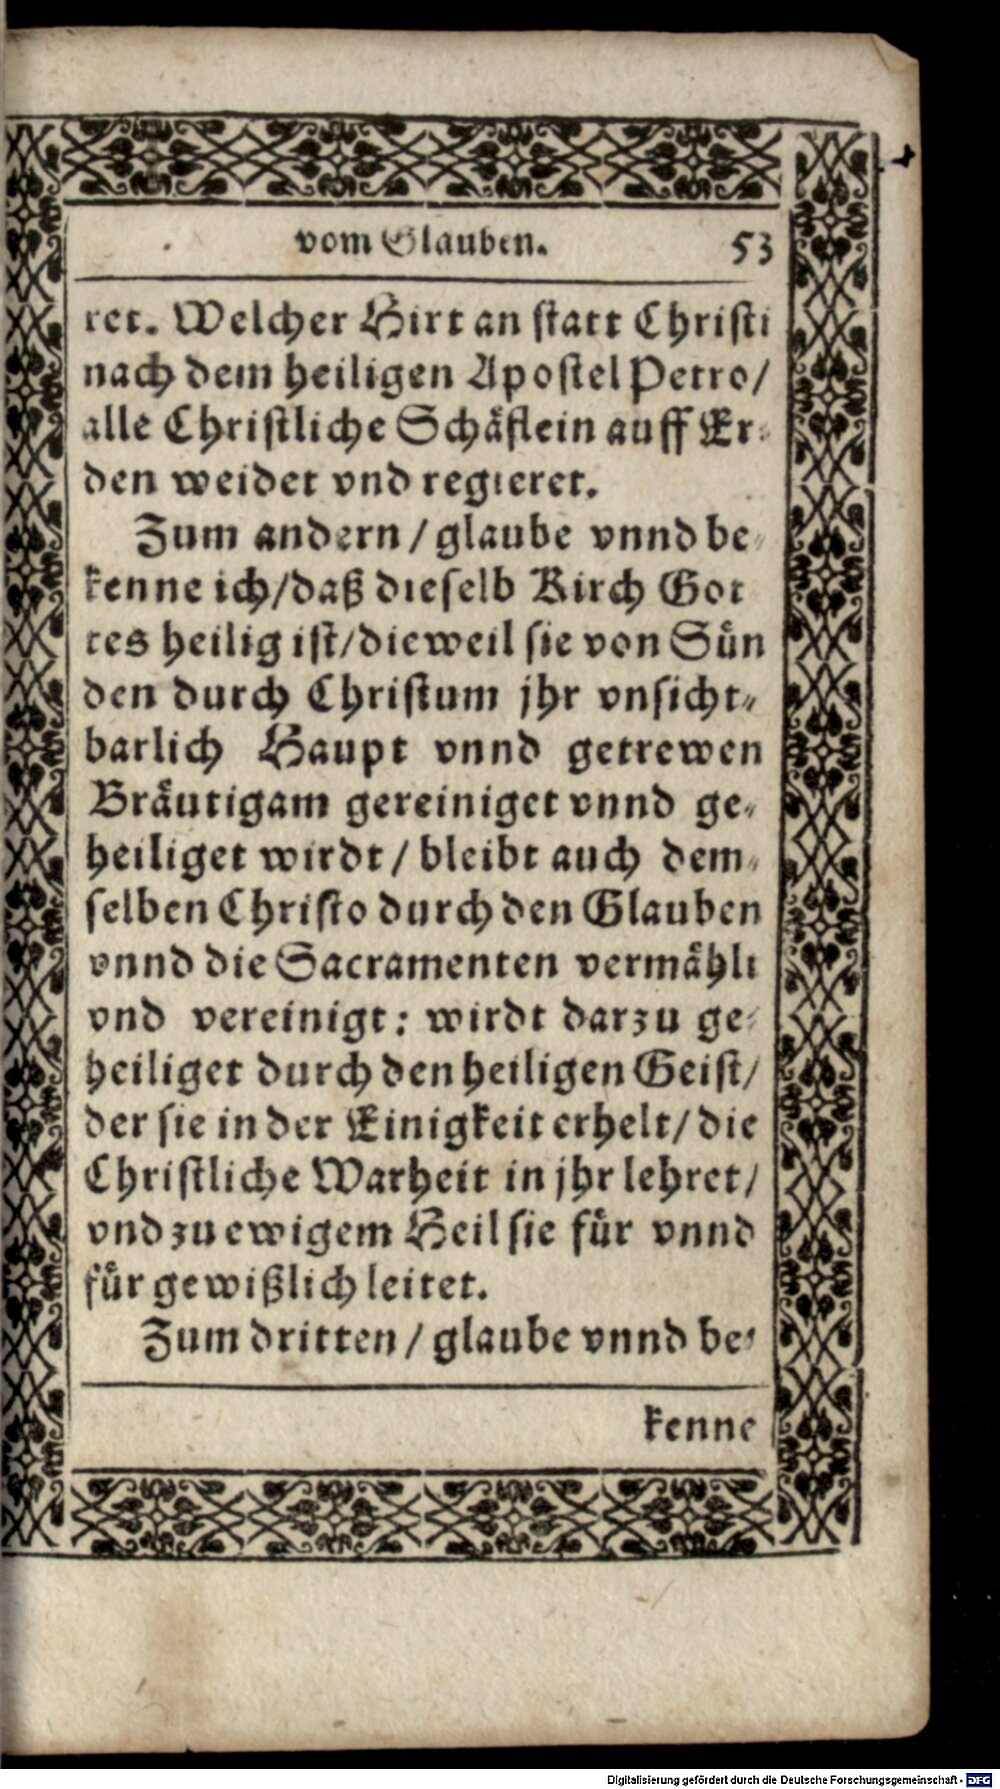 vom Glauben. 53
ret. Welcher Hirt an statt Christi
nach dem heiligen Apostel Petro/
alle Christliche Schäflein auff Er-
den weidet vnd regieret.
Zum andern / glaube vnnd be-
kenne ich/daß dieselb Kirch Got
tes heilig ist/dieweil sie von Sün
den durch Christum jhr vnsicht-
barlich Haupt vnnd getrewen
Bräutigam gereiniget vnnd ge-
heiliget wirdt / bleibt auch dem-
selben Christo durch den Glauben
vnnd die Sacramenten vermählt
vnd vereinigt: wirdt darzu ge-
heiliget durch den heiligen Geist/
der sie in der Einigkeit erhelt/ die
Christliche Warheit in jhr lehret/
vnd zu ewigem Heil sie für vnnd
für gewißlich leitet.
Zum dritten / glaube vnnd be-
kenne
Digitalisierung gefördert durch die Deutsche Forschungsgemeinschaft - DFG